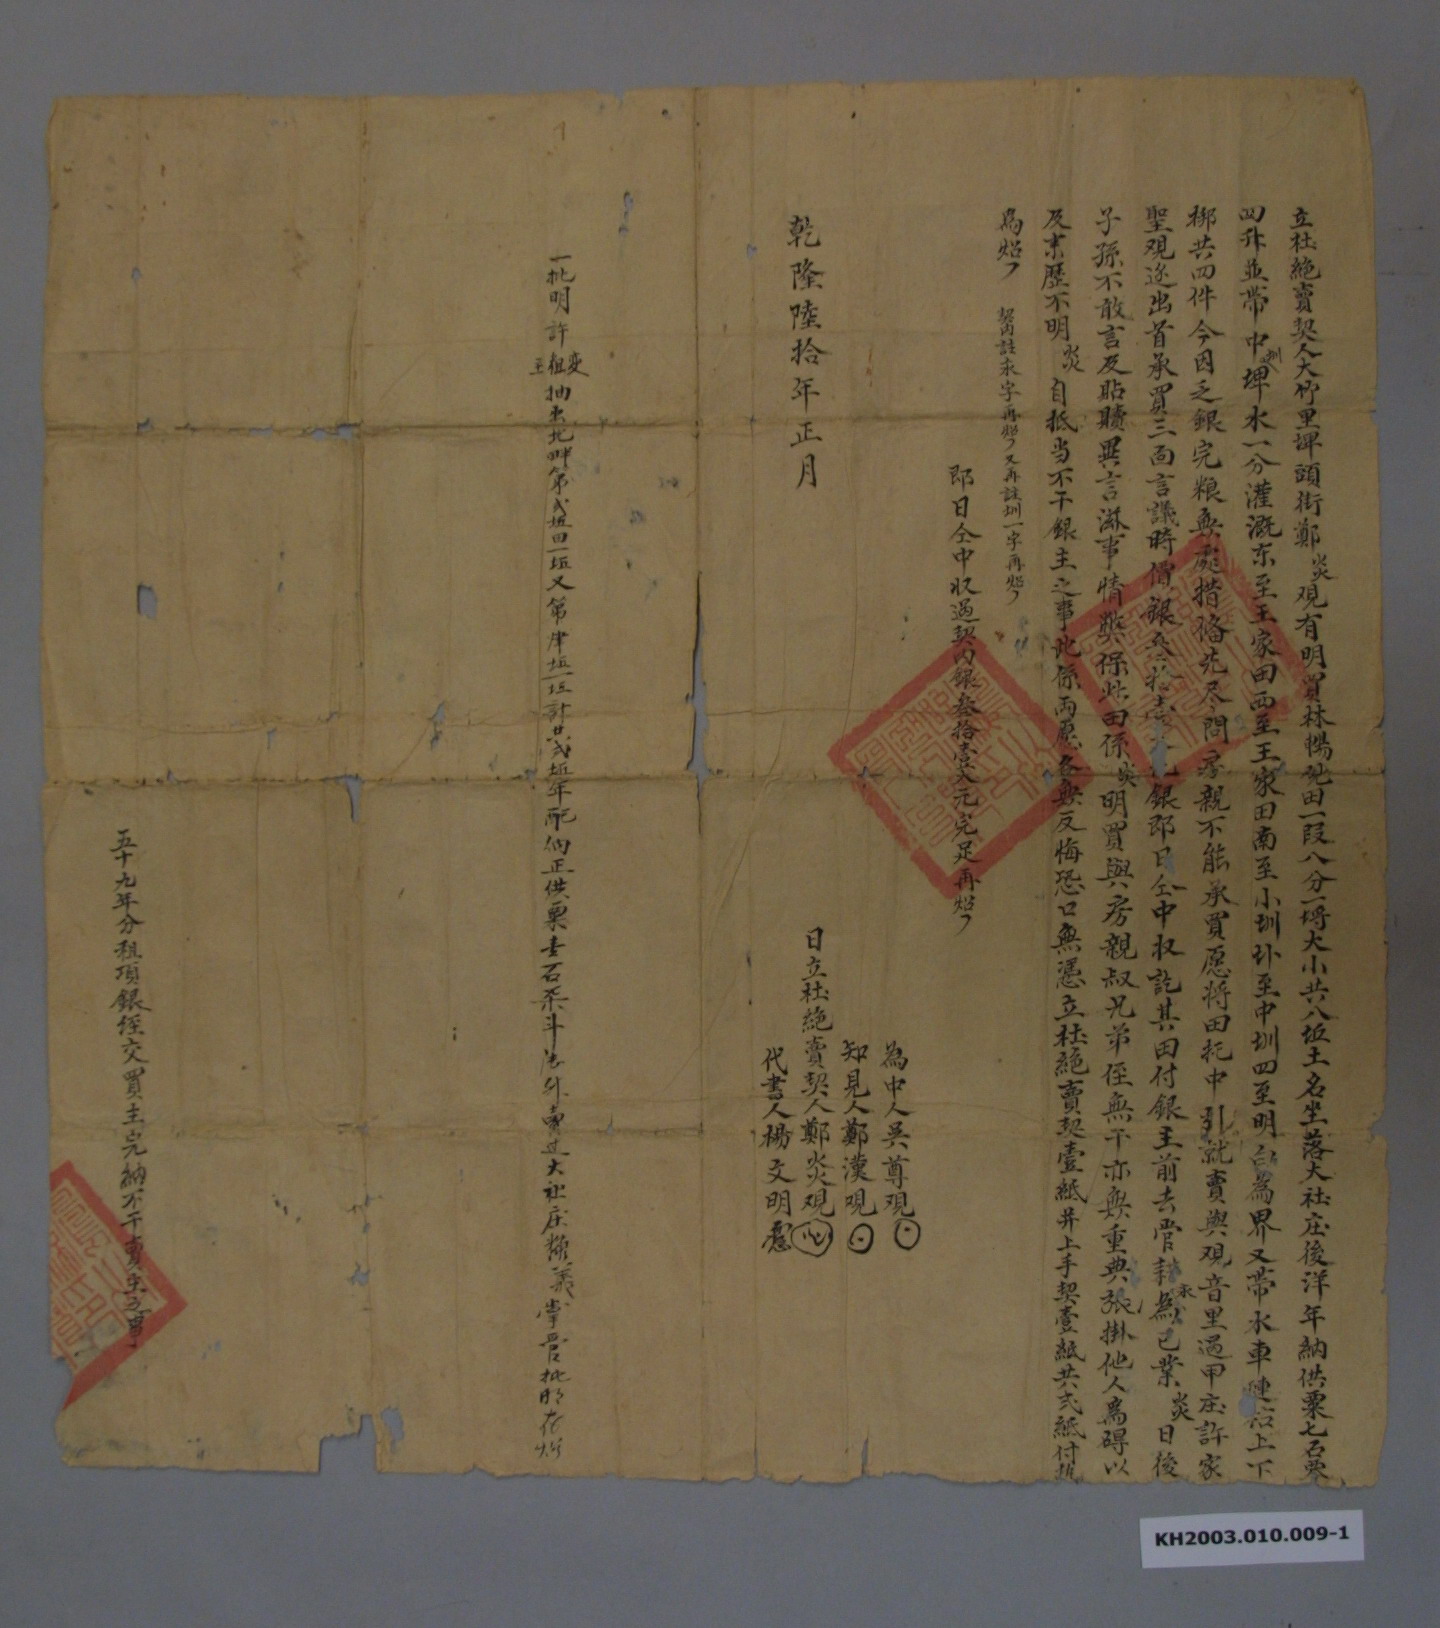 立杜絕賣契人大竹里埤頭街鄭炎观有明買林楊 田一段八分一埒大小共八坵土名坐落大社庄後洋年納供粟七石零
四升並帶中圳埤水一分灌溉东至王家田西至王家田南至小圳北至中圳四至明白為界又帶水車 上下
梆共四件今因乏銀完粮無處措俻先尽問房親不能承買愿将田托中引就賣與观音里過甲庄許家
聖观迯出首承買三面言議時價銀叁拾壹大元銀即日仝中収訖其田付銀主前去管耕永為己業炎日後
子孫不敢言及貼贖異言滋事情弊保此田係炎明買與房親叔兄弟侄無干亦無重典張掛他人為碍以
及来歷不明炎自抵当不干銀主之事此係両愿各無反悔恐口無憑立杜絕賣契壹紙并上手契壹紙共弍紙付执
為炤
契内註永字再炤又再註圳一字再炤
即日仝中収過契内銀叁拾壹大元完足再炤
為中人吳尊观
知見人鄭漢观
乾隆陸拾年正月 日立杜絕賣契人鄭炎观
代書人楊文明
一批明許 抽出北畔第弍坵田一坵又第 坵一坵計共弍坵年配納正供粟壹石柒斗 外賣过大社庄 掌管批明存炤
五十九年分租項銀侄交買主完納不干賣主之事
KH2003.010.009-1